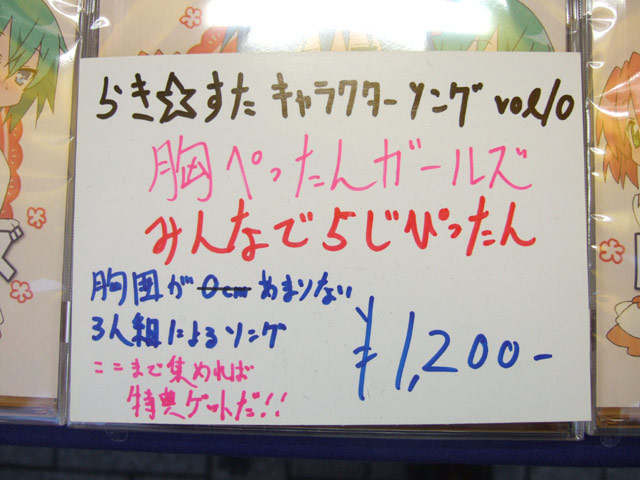 らき☆すた キャラクターソング vol10
胸ぺったんガールズ
みんなで5じぴったん
胸囲が 0cm あまりない
3人組によるソング
ここまで集めれば
特典ゲットだ!!
¥1,200-